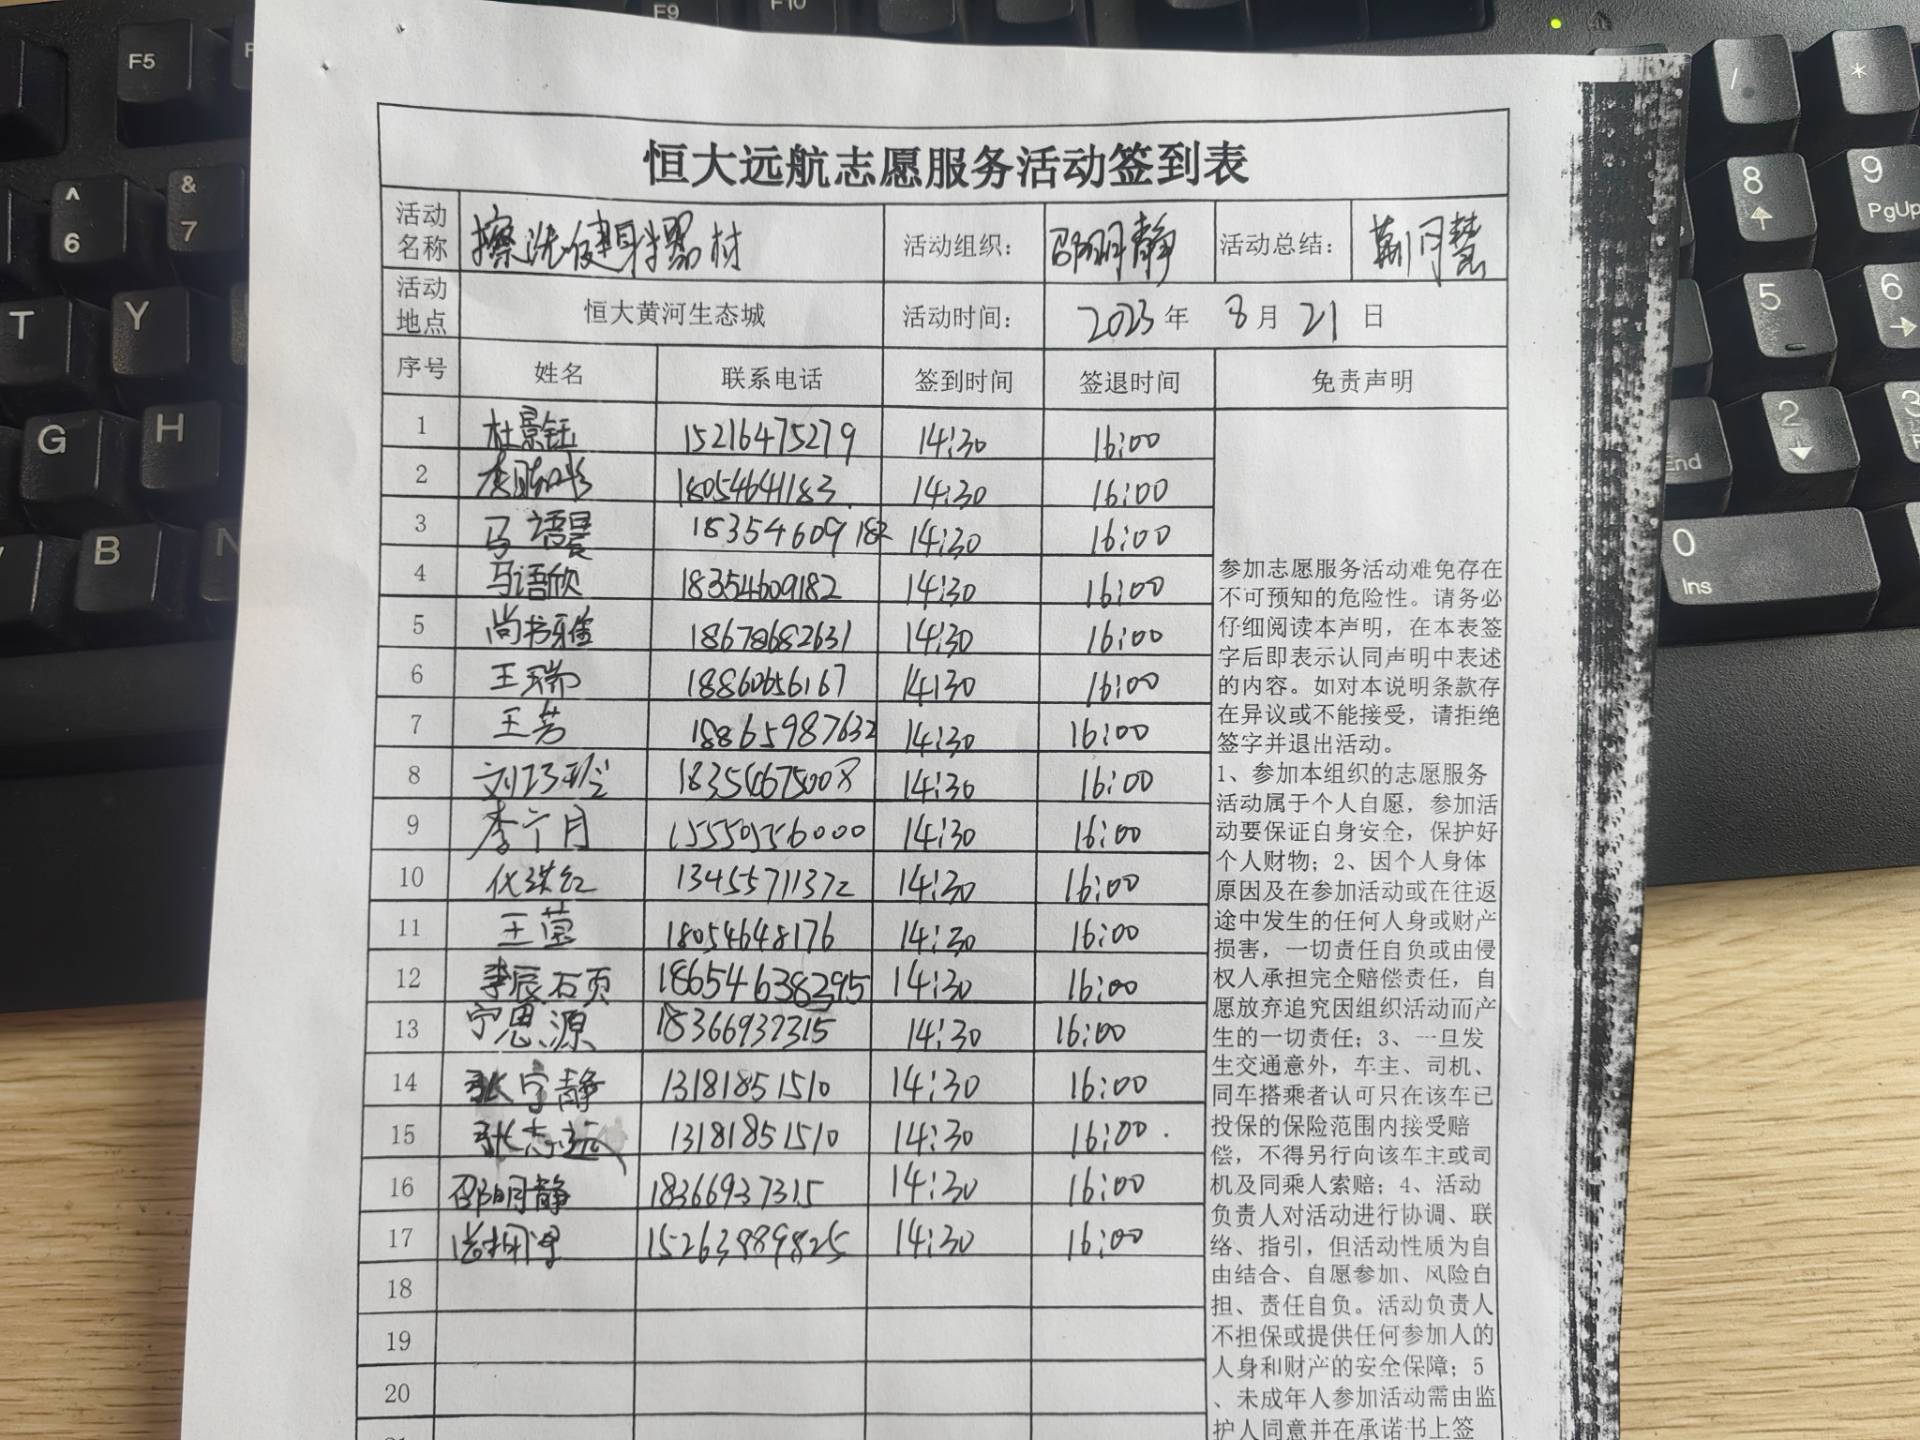 恒大远航志愿服务活动签到表
活动名称 擦洗健身器材 活动组织： 邵明静 活动总结： 靳月慧
活动地点 恒大黄河生态城 活动时间： 2023年 8月 21 日
序号 姓名 联系电话 签到时间 签退时间 免责声明
1 杜景钰 15216475279 14:30 16:00
2 18054641183 14:30 16:00
3 马语晨 18354609182 14:30 16:00
4 马语欣 18354609182 14:30 16:00
5 尚书雅 18678682631 14:30 16:00
6 王瑞 18860656167 14:30 16:00
7 王芳 18865987632 14:30 16:00
8 刘巧玲 18354675008 14:30 16:00
9 李宁月 15550556000 14:30 16:00
10 13455711372 14:30 16:00
11 王莹 18054648176 14:30 16:00
12 李辰硕 18654638295 14:30 16:00
13 宁思源 18366937315 14:30 16:00
14 张宁静 13181851510 14:30 16:00
15 张志远 13181851510 14:30 16:00
16 邵明静 18366937315 14:30 16:00
17 15263989825 14:30 16:00
18
19
20
参加志愿服务活动难免存在
不可预知的危险性。请务必
仔细阅读本声明，在本表签
字后即表示认同声明中表述
的内容。如对本说明条款存
在异议或不能接受，请拒绝
签字并退出活动。
1、参加本组织的志愿服务
活动属于个人自愿，参加活
动要保证自身安全，保护好
个人财物；2、因个人身体
原因及在参加活动或在往返
途中发生的任何人身或财产
损害，一切责任自负或由侵
权人承担完全赔偿责任，自
愿放弃追究因组织活动而产
生的一切责任；3、一旦发
生交通意外，车主、司机、
同车搭乘者认可只在该车已
投保的保险范围内接受赔
偿，不得另行向该车主或司
机及同乘人索赔；4、活动
负责人对活动进行协调、联
络、指引，但活动性质为自
由结合、自愿参加、风险自
担、责任自负。活动负责人
不担保或提供任何参加人的
人身和财产的安全保障；5
、未成年人参加活动需由监
护人同意并在承诺书上签
F5
F9
F10
^
6
&
7
T
Y
G
H
B
N
/
*
8
9
PgUp
5
6
End
2
3
0
Ins